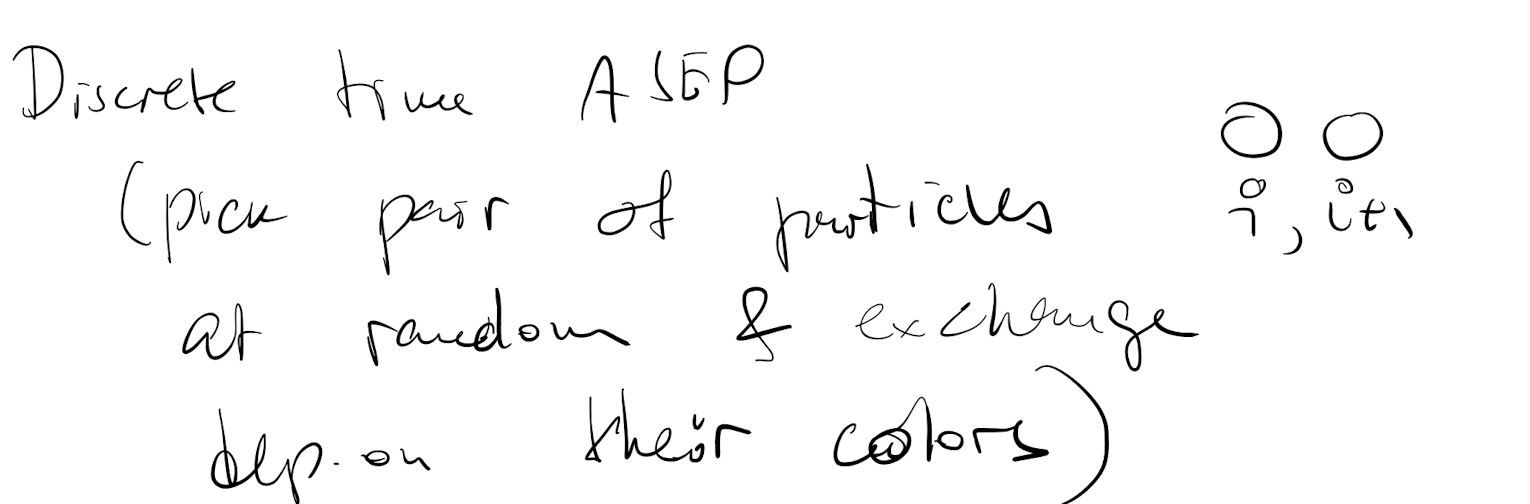 Discrete time ASEP
(pick pair of particles
i, i+1
at random & exchange
dep. on their colors)